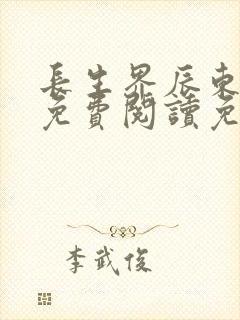 長生界辰東
免費閱讀免
李武俊